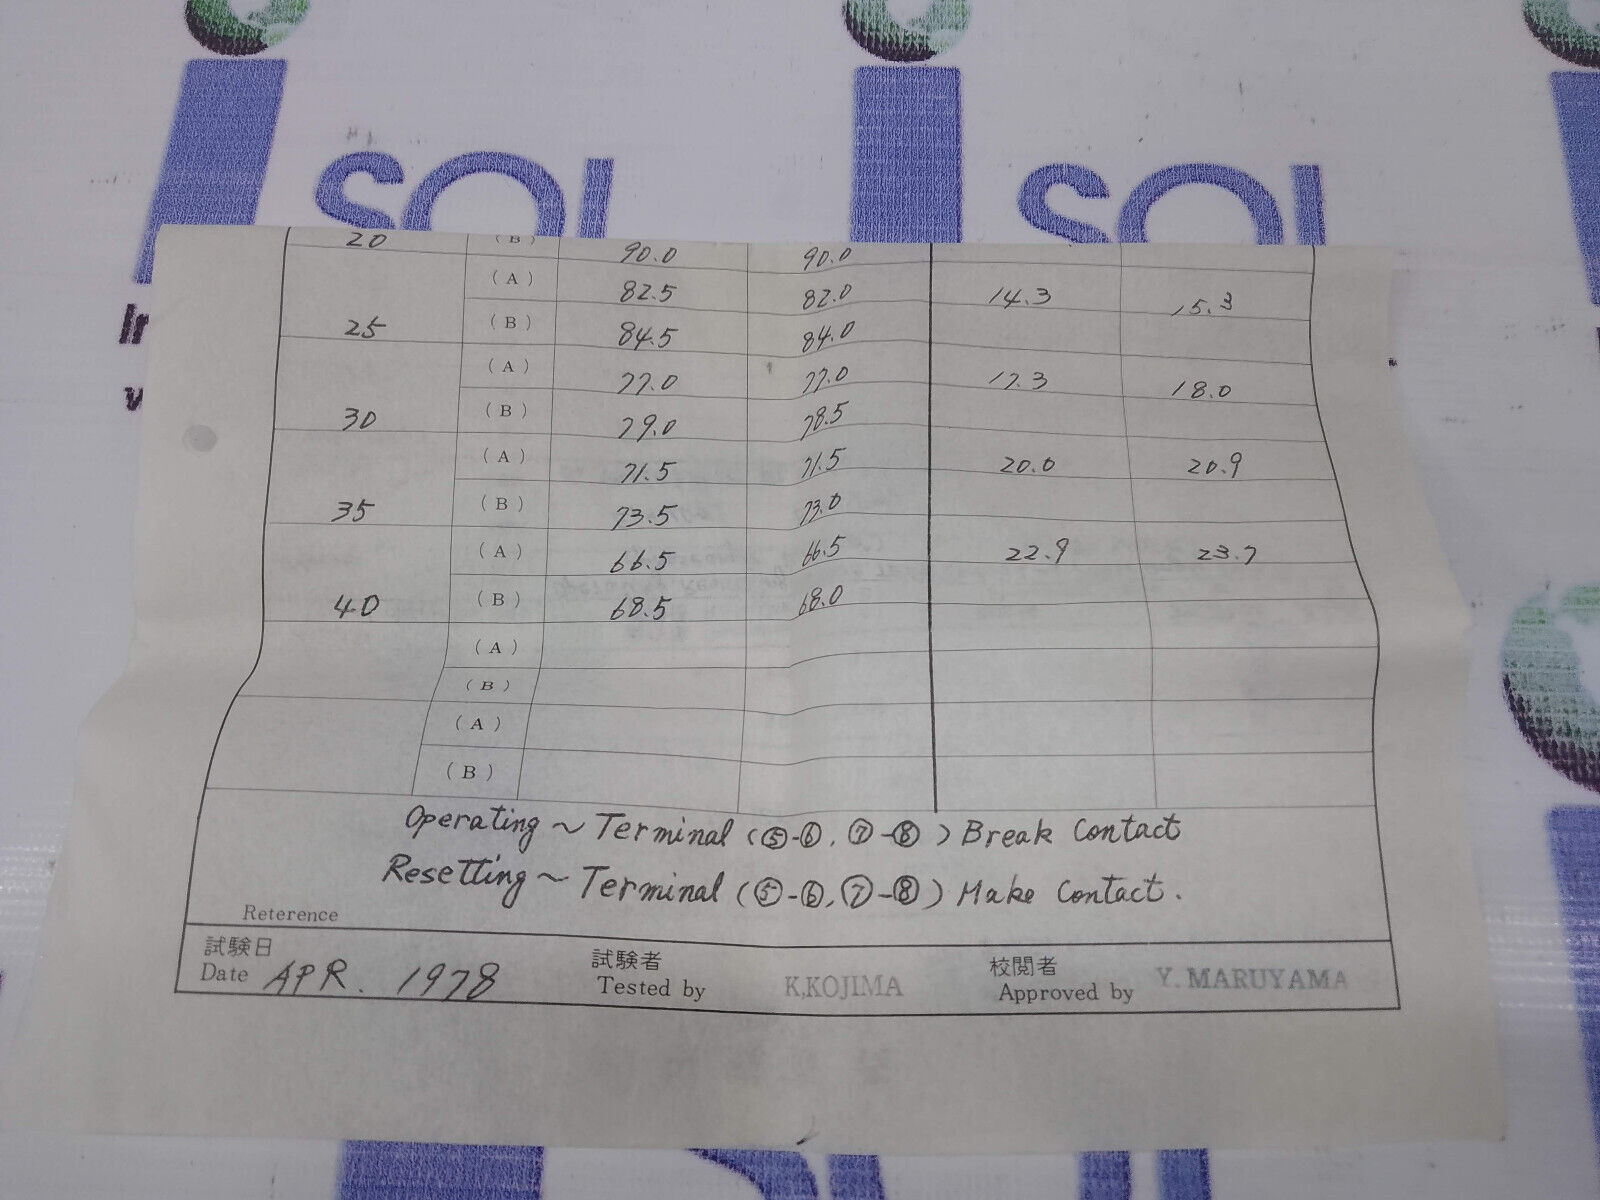 SOL SOL
In
v
20 (B) 90.0 90.0
(A) 82.5 82.0 14.3 15.3
25 (B) 84.5 84.0
(A) 77.0 77.0 17.3 18.0
30 (B) 79.0 78.5
(A) 71.5 71.5 20.0 20.9
35 (B) 73.5 73.0
(A) 66.5 66.5 22.9 23.7
40 (B) 68.5 68.0
(A)
(B)
(A)
(B)
Operating ~ Terminal (⑤-⑥, ⑦-⑧) Break Contact
Resetting ~ Terminal (⑤-⑥, ⑦-⑧) Make Contact.
Reterence
試験日 試験者 校閲者
Date APR. 1978 Tested by K,KOJIMA Approved by Y. MARUYAMA